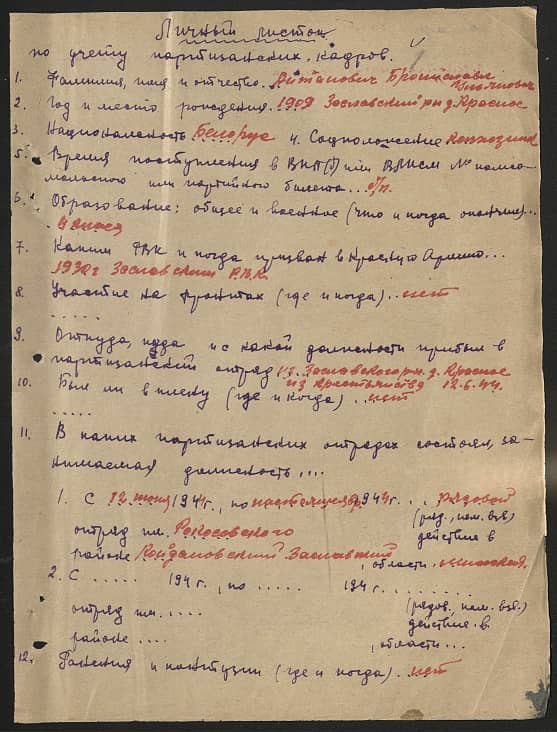 Личный листок
по учету партизанских кадров.
1. Фамилия, имя и отчество. Дитанович Бронислав
Ульянович
2. Год и место рождения. 1909 Заславский рн д. Красное
3. Национальность Белорус 4. Соцположение Колхозник
5. Время поступления в ВКП(б) или ВЛКСМ № комсо-
мольского или партийного билета... б/п.
6. Образование: общее и военное (что и когда окончил)...
4 класса
7. Каким РВК и когда призван в Красную Армию...
1930 г Заславским Р.В.К.
8. Участие на фронтах (где и когда).. нет
.....
9. Откуда, куда и с какой должности прибыл в
партизанский отряд из Заславского рн. д. Красное
из крестьянства 12.6.44.
10. Был ли в плену (где и когда)... нет
.....
11. В каких партизанских отрядах состоял, за-
нимаемая должность....
1. С 12 июня 1944г., по настоящее вр. 1944г... рядовой
отряд им. Рокосовского (ряд., ком. взв)
действия в
районе Койдановский Заславский, области. минской.
2. С ..... 194 г., по ..... 194 ........
отряд им.... (рядов., ком. взв.)
действия в
районе ...., области...
12. Ранения и контузии (где и когда).. нет